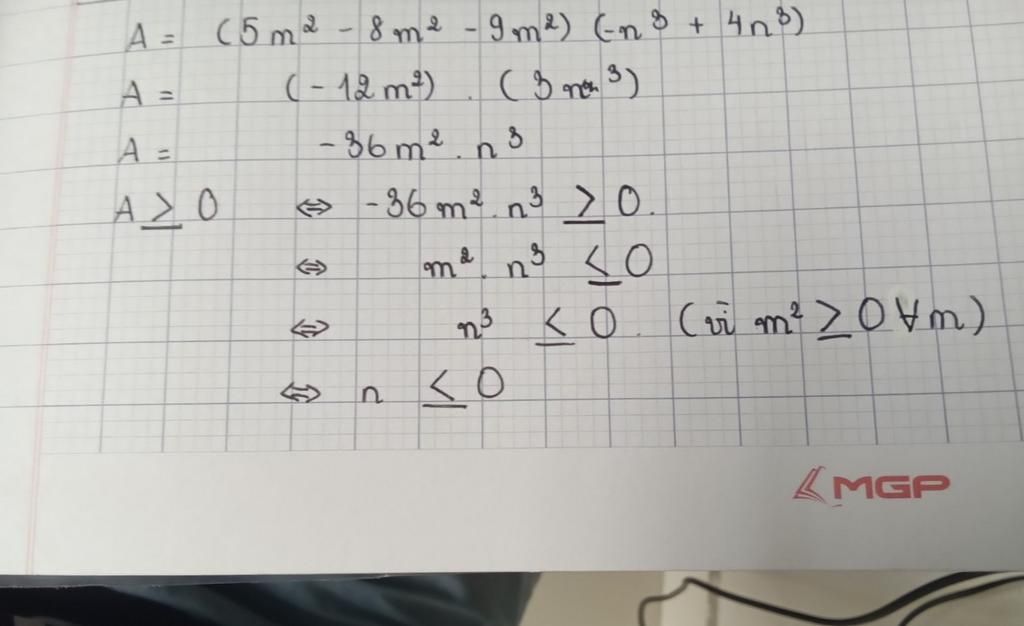 A = (5m² - 8m² - 9m²) (-n³ + 4n³)
A = (-12m²) . (3n³)
A = -36m² . n³
A ≥ 0 ⇔ -36m² . n³ ≥ 0.
⇔ m² . n³ ≤ 0
⇔ n³ ≤ 0. (vì m² ≥ 0 ∀ m)
⇔ n ≤ 0
MGP